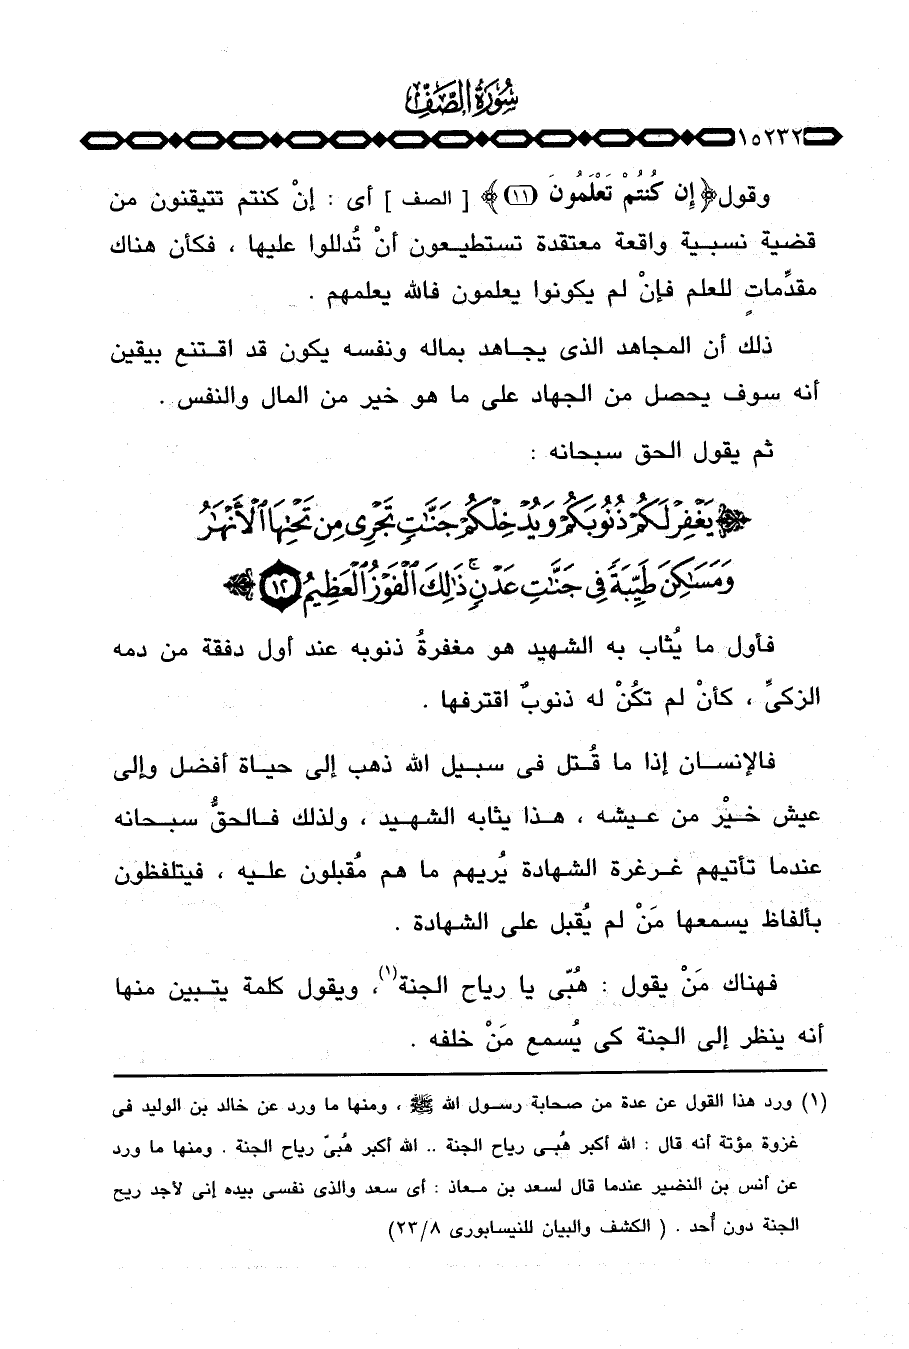 سُورَةُ الصَّفِّ
١٥٢٣٢
وقول ﴿إِن كُنتُمْ تَعْلَمُونَ (١١)﴾ [ الصف ] أى : إنْ كنتم تتيقنون من
قضية نسبية واقعة معتقدة تستطيعون أنْ تُدللوا عليها ، فكأن هناك
مقدِّماتٍ للعلم فإنْ لم يكونوا يعلمون فالله يعلمهم .
ذلك أن المجاهد الذى يجاهد بماله ونفسه يكون قد اقتنع بيقين
أنه سوف يحصل من الجهاد على ما هو خير من المال والنفس .
ثم يقول الحق سبحانه :
﴿ يَغْفِرْ لَكُمْ ذُنُوبَكُمْ وَيُدْخِلْكُمْ جَنَّاتٍ تَجْرِى مِن تَحْتِهَا ٱلْأَنْهَارُ
وَمَسَاكِنَ طَيِّبَةً فِى جَنَّاتِ عَدْنٍ ۚ ذَالِكَ ٱلْفَوْزُ ٱلْعَظِيمُ ١٢ ﴾
فأول ما يُثاب به الشهيد هو مغفرةُ ذنوبه عند أول دفقة من دمه
الزكىِّ ، كأنْ لم تكُنْ له ذنوبٌ اقترفها .
فالإنسان إذا ما قُتل فى سبيل الله ذهب إلى حياة أفضل وإلى
عيش خيْر من عيشه ، هذا يثابه الشهيد ، ولذلك فالحقُّ سبحانه
عندما تأتيهم غرغرة الشهادة يُريهم ما هم مُقبلون عليه ، فيتلفظون
بألفاظ يسمعها مَنْ لم يُقبل على الشهادة .
فهناك مَنْ يقول : هُبّى يا رياح الجنة(١)، ويقول كلمة يتبين منها
أنه ينظر إلى الجنة كى يُسمع مَنْ خلفه .
(١) ورد هذا القول عن عدة من صحابة رسول الله ﷺ ، ومنها ما ورد عن خالد بن الوليد فى
غزوة مؤتة أنه قال : الله أكبر هُبى رياح الجنة .. الله أكبر هُبىّ رياح الجنة . ومنها ما ورد
عن أنس بن النضير عندما قال لسعد بن معاذ : أى سعد والذى نفسى بيده إنى لأجد ريح
الجنة دون أُحد . ( الكشف والبيان للنيسابورى ٢٣/٨)